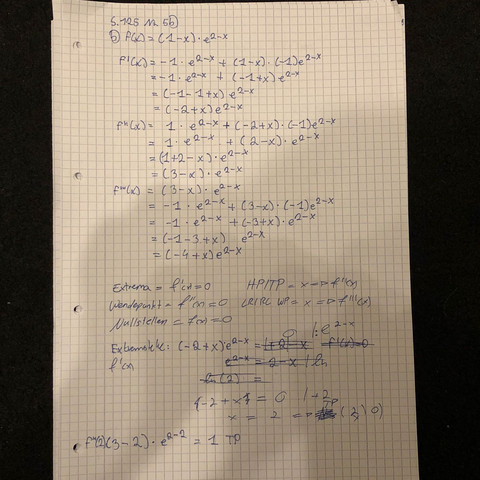 S. 125 Nr. 5b)
b) f(x) = (1-x)·e^2-x
f'(x) = -1·e^2-x + (1-x)·(-1)e^2-x
= -1·e^2-x + (-1+x)e^2-x
= (-1-1+x)e^2-x
= (-2+x)e^2-x
f''(x) = 1·e^2-x + (-2+x)·(-1)e^2-x
= 1·e^2-x + (2-x)·e^2-x
= (1+2-x)·e^2-x
= (3-x)·e^2-x
f'''(x) = (3-x)·e^2-x
= -1·e^2-x + (3-x)·(-1)e^2-x
= -1·e^2-x + (-3+x)·e^2-x
= (-1-3+x) e^2-x
= (-4+x)e^2-x
Extrema = f'(x)=0 HP/TP = x => f''(x)
Wendepunkt = f''(x)=0 LR/RL WP = x => f'''(x)
Nullstellen = f(x)=0
Extremstelle: (-2+x)e^2-x = 0 |:e^2-x
f'(x) e^2-x = 2-x | ln
ln(2) =
-2+x = 0 |+2
x = 2 => TP (2/0)
f''(2)(3-2)·e^2-2 = 1 TP